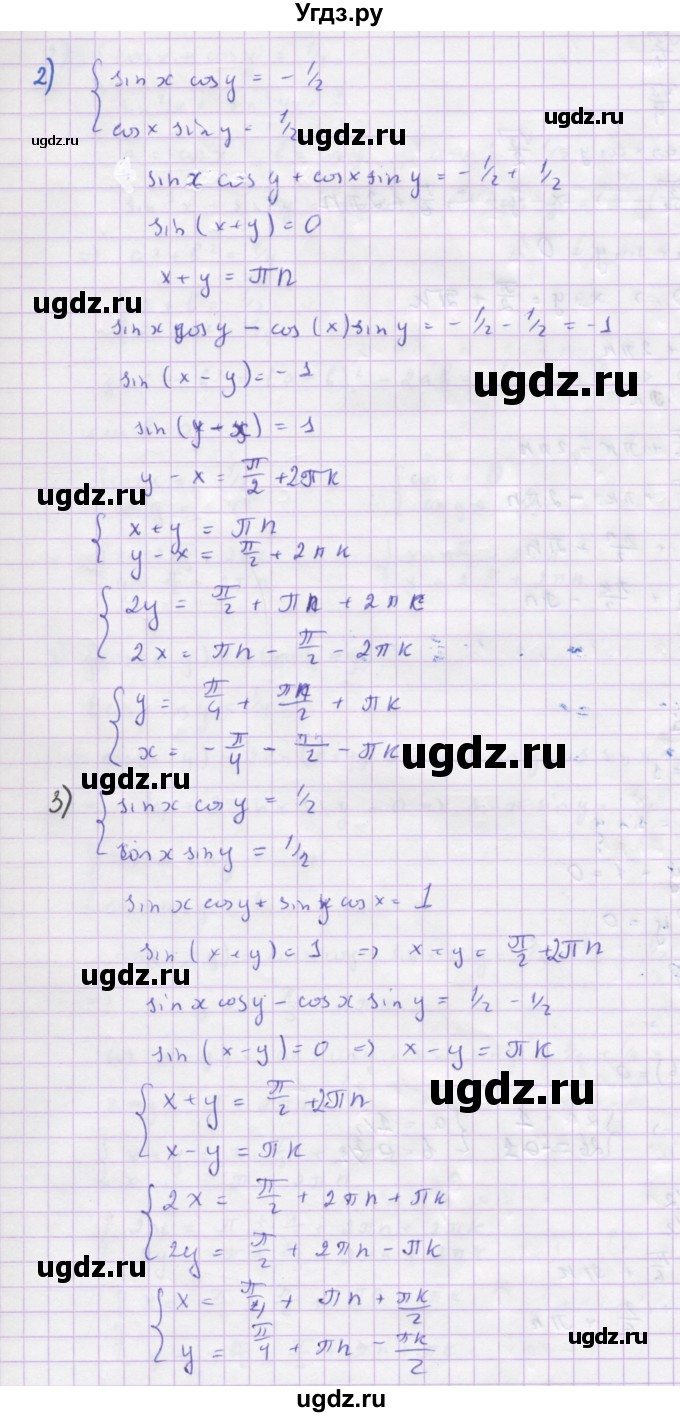 Угдз.ру
2) { sin x cos y = - 1/2
cos x sin y = 1/2
ugdz.ru
ugdz.ru
ugdz.ru
sin x cos y + cos x sin y = - 1/2 + 1/2
sin (x+y) = 0
x + y = πn
ugdz.ru
sin x cos y - cos (x) sin y = - 1/2 - 1/2 = -1
sin (x - y) = - 1
ugdz.ru
sin (y - x) = 1
y - x = π/2 + 2πk
ugdz.ru
{ x + y = πn
y - x = π/2 + 2πk
{ 2y = π/2 + πn + 2πk
2x = πn - π/2 - 2πk
{ y = π/4 + πn/2 + πk
x = - π/4 - πn/2 - πk
ugdz.ru
ugdz.ru
3) { sin x cos y = 1/2
cos x sin y = 1/2
sin x cos y + sin y cos x = 1
sin (x+y) = 1 => x + y = π/2 + 2πn
ugdz.ru
sin x cos y - cos x sin y = 1/2 - 1/2
sin (x-y) = 0 => x - y = πk
ugdz.ru
{ x + y = π/2 + 2πn
x - y = πk
{ 2x = π/2 + 2πn + πk
2y = π/2 + 2πn - πk
ugdz.ru
{ x = π/4 + πn + πk/2
y = π/4 + πn - πk/2
ugdz.ru
ugdz.ru